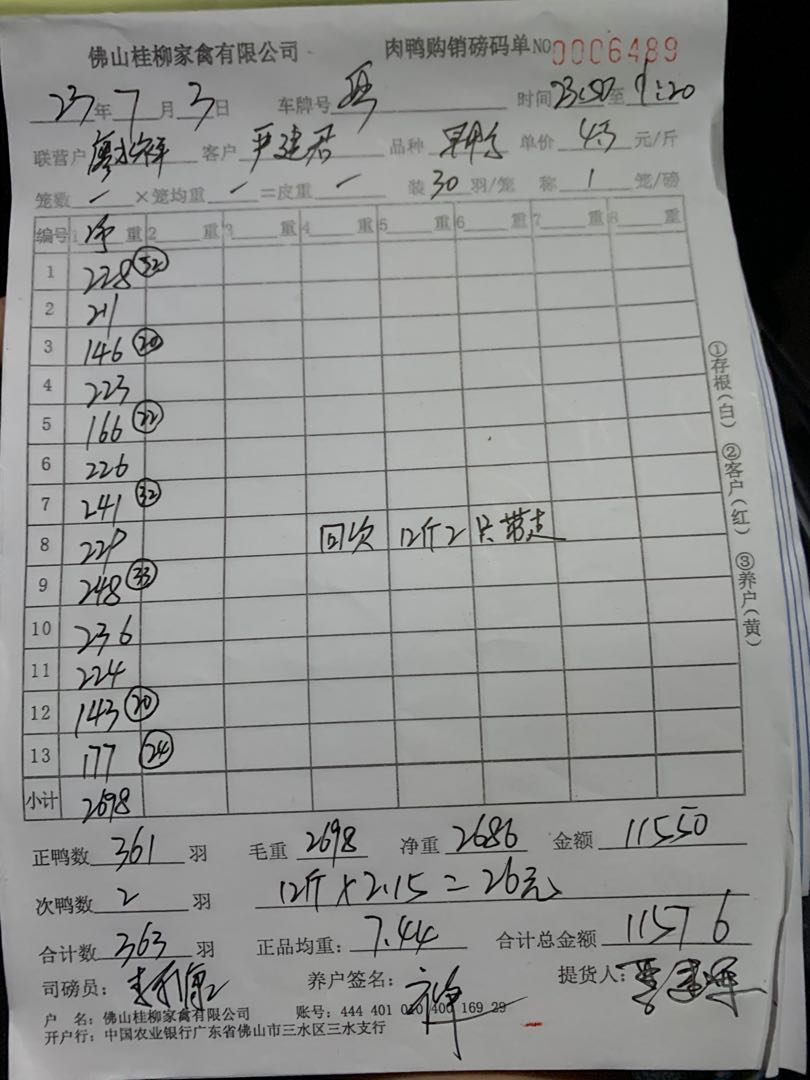 佛山桂柳家禽有限公司 肉鸭购销磅码单 NO 0006489
23年7月3日 车牌号 时间23:50至1:20
联营户 客户 严建君 品种 单价 4.3 元/斤
笼数 一 ×笼均重 一 =皮重 一 装 30 羽/笼 称 1 笼/磅
编号 1 净 重 2 重 3 重 4 重 5 重 6 重 7 重 8 重
1 228 32
2 211
3 146 20
4 223
5 166 22
6 226
7 241 32
8 229 回次 12斤2只带走
9 248 33
10 236
11 224
12 143 20
13 177 24
小计 2698
①存根(白) ②客户(红) ③养户(黄)
正鸭数 361 羽 毛重 2698 净重 2686 金额 11550
次鸭数 2 羽 12斤×2.15=26元
合计数 363 羽 正品均重: 7.44 合计总金额 11576
司磅员: 养户签名: 提货人:
户 名: 佛山桂柳家禽有限公司 账号: 444 401 010 400 169 29
开户行: 中国农业银行广东省佛山市三水区三水支行